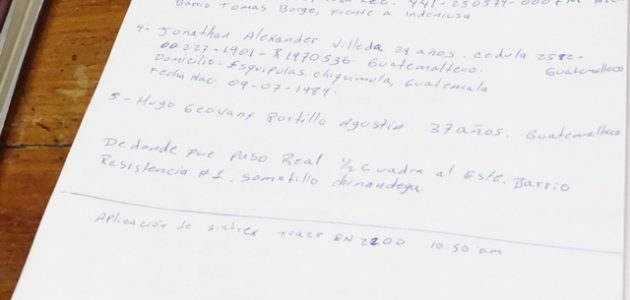 Barrio Tomas Borge, frente a Indenicsa
4- Jonathan Alexander Villeda 29 años. cedula 2592-
00227-1901- R 1970536. Guatemalteco. Guatemalteco
Domicilio: Esquipulas, chiquimula, Guatemala
Fecha Nac. 09-07-1984.
5- Hugo Geovany Portillo Agustin. 37 años. Guatemalteco
De donde fue Paso Real 1/2 Cuadra al Este. Barrio
Resistencia #1. Somotillo chinandega
Aplicación de Trace EN 2200 10:50 am